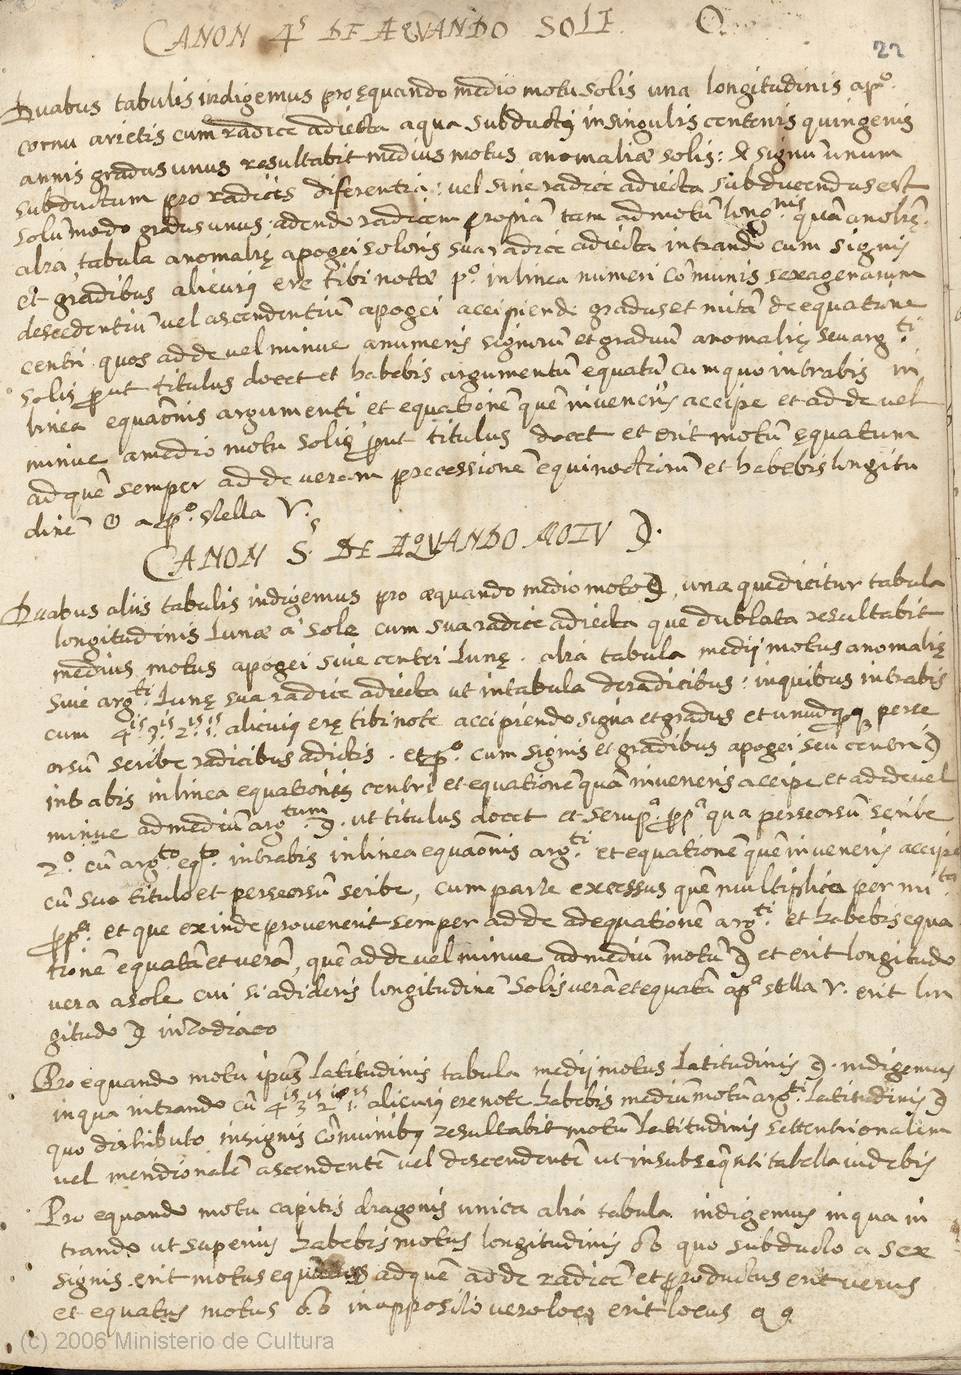 CANON 4ˢ DE AEQVANDO SOLE. O
22
Duabus tabulis indigemus pro ęquando medio motu solis una longitudinis apº.
cornu arietis cum radice adiecta a qua subductis in singulis centenis quingenis
annis gradus unus resultabit medius motus anomaliæ solis: & signũ unum
subductum pro radicis diferentia: vel sine radice adiecta subducendus est
solũ modo gradus unus. adendo radicem propiã tam ad motũ long.ⁿⁱˢ quã
alia tabula anomalię apogei soloris sua radice adiecta intrando cum signis
et gradibus alicuiq ere tibi notæ pº in linea numeri cõmunis sexagenarum
descedentiũ vel ascendentiũ apogei accipiende gradus et mitã de equatione
centri quos adde vel minue a numeris signorũ et graduũ anomalię seu arg.ᵗⁱ
solis put titulus docet et habebis argumentũ equatũ cum quo intrabis in
linea equaõnis argumenti et equationẽ quẽ inveneris accipe et adde vel
minue a medio motu solis put titulus docet et erit motũ ęquatum
ad quẽ semper adde veram precessionẽ equinoctiorũ et habebis longitu
dinẽ ☉ a pº. stella ♈.
CANON 5ˢ DE AEQVANDO MOTV ☽.
Duabus aliis tabulis indigemus pro æquando medio moto ☽, una que dicitur tabula
longitudinis Lunæ a sole cum sua radice adiecta que dublata resultabit
medius motus apogei sive centri Lunę. alia tabula medij motus anomalię
sive arg.ᵗⁱ Lunę sua radice adiecta ut in tabula de radicibus: in quibus intrabis
cum 4ⁱˢ 3ⁱˢ 2ⁱˢ 1ⁱˢ alicuiq erę tibi note accipiendo signa et gradus et unudqq perse
orsũ scribe radicibus adictis. et pº. cum signis et gradibus apogei seu centri ☽
intrabis in linea equationis centri et equationẽ quã inveneris accipe et adde vel
minue ad mediũ arg.ᵗᵘᵐ ☽. ut titulus docet et scrup.ᵃ ppª qua perseorsũ scribe
2º. cũ arg.ᵗᵒ eq.ᵗᵒ intrabis in linea equaõnis arg.ᵗⁱ et equationẽ quẽ inveneris accipe
cũ suo titulo et perseorsũ scribe, cum parte excessus quẽ multiplica per mi.ᵗᵃ
ppª. et que exinde provenerit semper adde ad equationẽ arg.ᵗⁱ et habebis equa
tionẽ equatã et verã, quẽ adde vel minue ad mediũ motũ ☽ et erit longitudo
vera a sole cui si adideris longitudinẽ solis verã et equatã apº stella ♈. erit lon
gitudo ☽ in zodiaco
Pro equando motu ipsus latitudinis tabula medij motus latitudinis ☽. indigemus
in qua intrando cũ 4ⁱˢ 3ⁱˢ 2ⁱˢ 1ⁱˢ alicuiq ere note habebis mediũ motũ arg.ᵗⁱ latitudinis ☽
quo distributo in signis cõmunibq resultabit motũ latitudinis settentrionalem
vel meridionalẽ ascendentẽ vel descendentẽ ut in subseq̃nti tabella videbis
Pro equando motu capitis dragonis unica alia tabula. indigemus in qua in
trando ut superius habebis motus longitudinis ☊ quo subducto a sex
signis erit motus ad quẽ adde radicẽ et productus erit verus
et equatus motus ☊ in apposito vero loco erit locus ☋
(c) 2006 Ministerio de Cultura